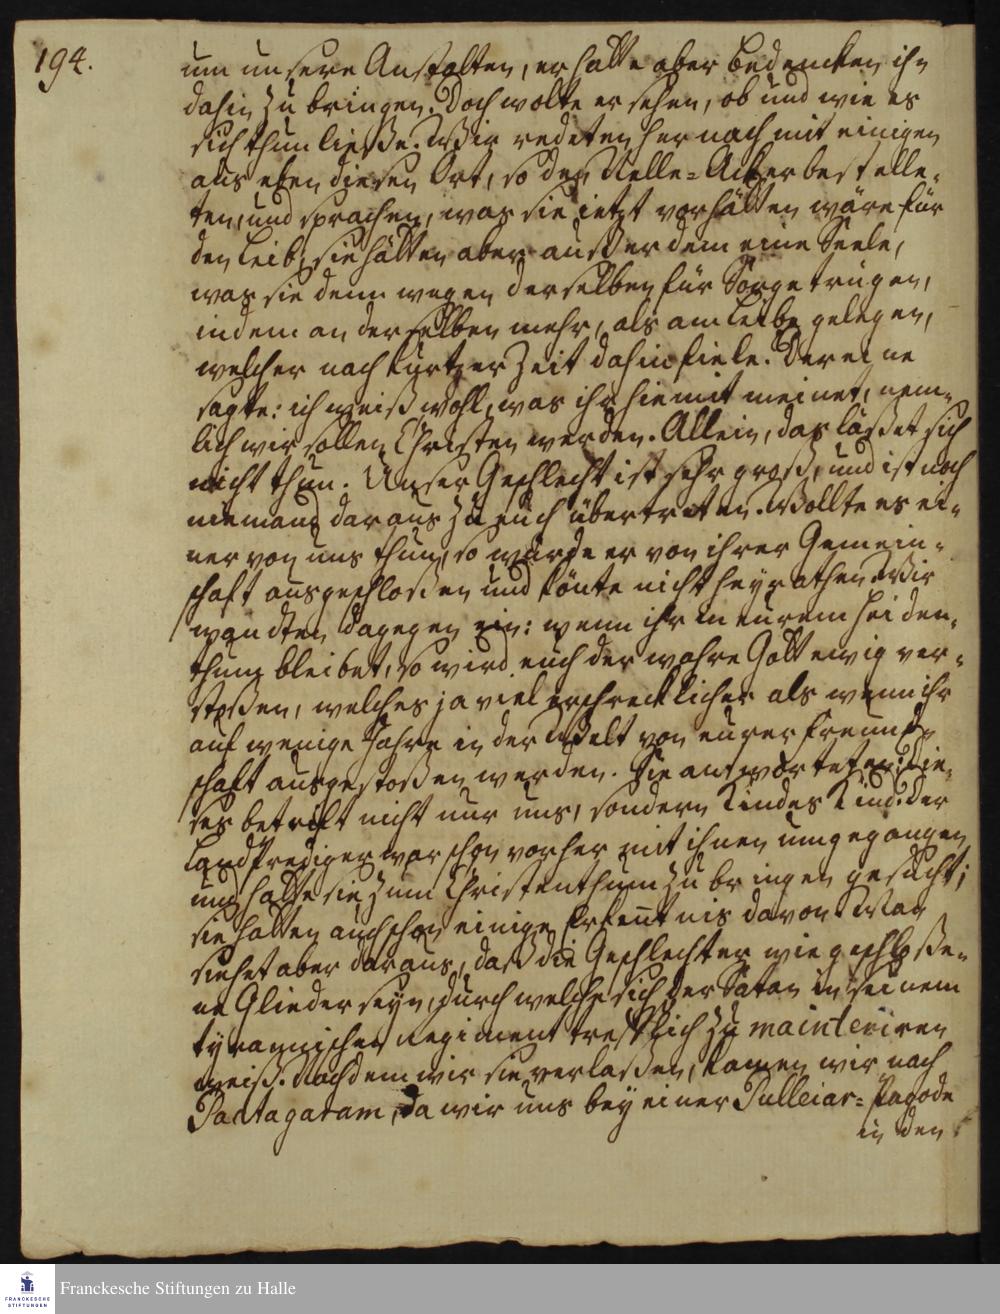 194.
um unsere Anstalten, er hatte aber Bedencken ihn
dahin zu bringen. Doch wolte er sehen, ob und wie es
sich thun ließe. Wir redeten hernach mit einigen
aus eben diesen Ort, so den Nelle-Acker bestelle-
ten, und sprachen, was sie ietzt vorhätten wäre für
den Leib, sie hätten aber außerdem eine Seele,
was sie denn wegen derselben für Sorge trügen,
indem an derselben mehr, als am Leibe gelegen,
welcher nach kurtzer Zeit dahinfiele. Der eine
sagte: ich weiß wohl, was ihr hiemit meinet, nem-
lich wir sollen Christen werden. Allein, das läßet sich
nicht thun. Unser Geschlecht ist sehr groß, und ist noch
niemand daraus zu euch übertreten. Wollte es ei-
ner von uns thun, so würde er von ihrer Gemein-
schaft ausgeschloßen und könte nicht heyrathen. Wir
wandten dagegen ein: wenn ihr in eurem Heiden-
thum bleibet, so wird euch der wahre Gott ewig ver-
stoßen, welches ja viel erschrecklicher als wenn ihr
auf wenige Jahre in der Welt von eurer Freund-
schaft ausgestoßen werden. Sie antworteten: Die-
ses betrift nicht nur uns, sondern Kindes Kind. Der
Landprediger war schon vorher mit ihnen umgegangen
und hatte sie zum Christenthum zu bringen gesucht;
sie hatten auch schon einige Erkentnis davon. Man
siehet aber daraus, daß die Geschlechter wie geschloße-
ne Glieder seyn, durch welche sich der Satan in seinem
tyrannischen Regiment trefflich zu mainteniren
weiß. Nachdem wir sie verlaßen, kamen wir nach
Pattagaram, da wir uns bey einer Pulleiar-Pagode
in den
Franckesche Stiftungen zu Halle
FRANCKESCHE
STIFTUNGEN